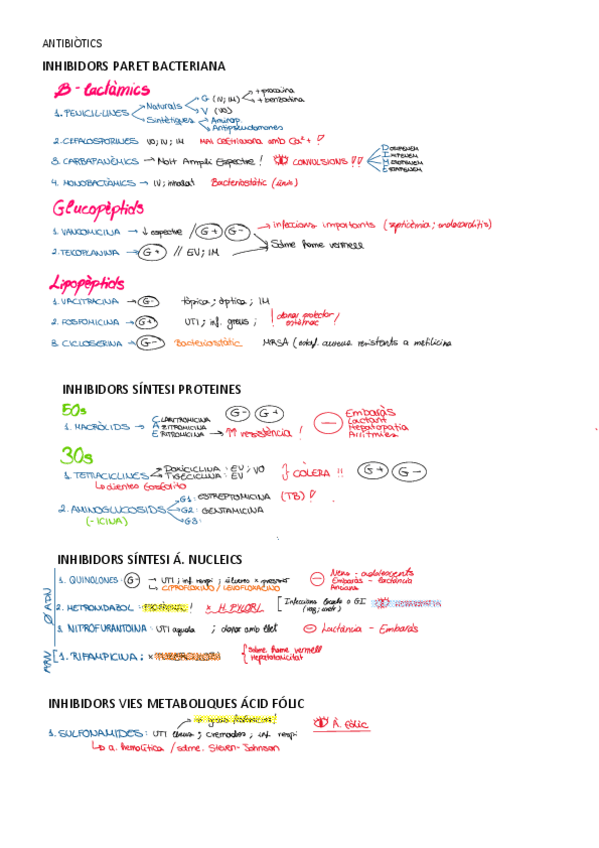 ANTIBIÒTICS
INHIBIDORS PARET BACTERIANA
B-lactàmics
1. PENICIL·LINES Naturals G (IV; IM) + procaïna + benzatina
V (VO)
Sintètiques Aminop. Antipseudomones
2. CEFALOSPORINES VO; IV; IM MAI Ceftriaxona amb Ca2+ !
3. CARBAPANÈMICS → Molt Ampli Espectre! CONVULSIONS!!
4. MONOBACTÀMICS → IV; inhalat Bacteriostàtic (únic)
Glucopèptids
1. VANCOMICINA → ↓ espectre / G+ G- → infeccions importants (septicèmia; endocarditis)
2. TEICOPLANINA → G+ // EV; IM Sdme home vermell
Lipopèptids
1. VACITRACINA → G- tòpica; òptica; IM
2. FOSFOMICINA → G+ UTI; inf. greus;
3. CICLOSERINA → G- Bacteriostàtic MRSA (estaf. aureus resistents a meticilina
INHIBIDORS SÍNTESI PROTEINES
50s
1. MACRÒLIDS → CLARITROMICINA AZITROMICINA ERITROMICINA → ↑↑ resistència! G- G+
Embaràs
Lactant
Hepatopatia
Arritmies
30s
1. TETRACICLINES DOXICICLINA: EV; VO TIGECICLINA: EV } CÒLERA !! G+ G-
2. AMINOGLUCÒSIDS G1: ESTREPTOMICINA (TB)!
(-ICINA) G2: GENTAMICINA
G3:
INHIBIDORS SÍNTESI Á. NUCLEICS
Ø ADN
1. QUINOLONES: G- → UTI; inf. respi;
CIPROFLOXINO / LEVOFLOXACINO
Nens - adolescents
Embaràs - lactància
Ancians
2. METRONIDAZOL: × H. PYLORI
3. NITROFURANTOINA: UTI aguda; donar amb llet Lactància - Embaràs
ARN
1. RIFAMPICINA: × TUBERCULOSI Sdme. home vermell
Hepatotoxicitat
INHIBIDORS VIES METABOLIQUES ÁCID FÓLIC
À. Fòlic
1. SULFONAMIDES: UTI lleus; cremades; inf. respi
a. hemolítica / sdme. Steven-Johnson